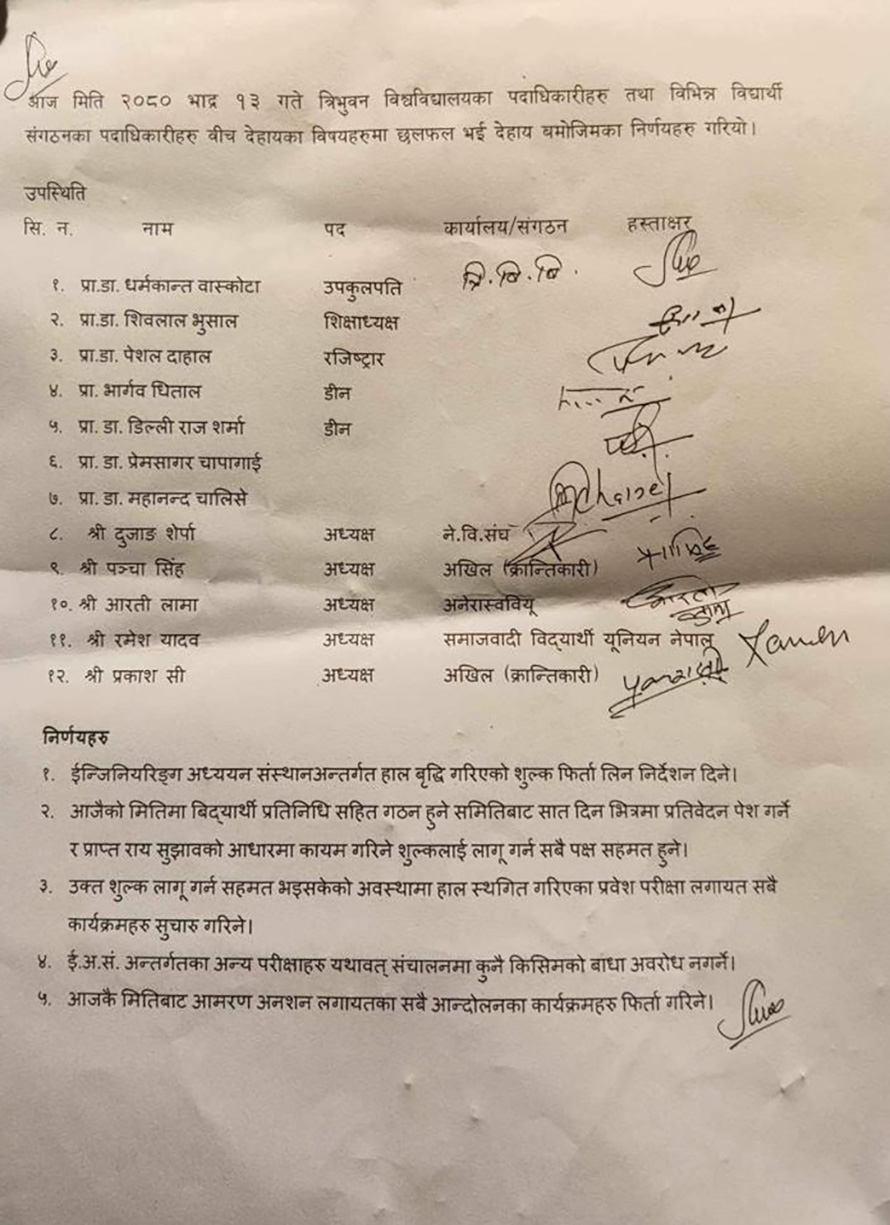 आज मिति २०८० भाद्र १३ गते त्रिभुवन विश्वविद्यालयका पदाधिकारीहरु तथा विभिन्न विद्यार्थी
संगठनका पदाधिकारीहरु वीच देहायका विषयहरुमा छलफल भई देहाय बमोजिमका निर्णयहरु गरियो।
उपस्थिति
सि. न. नाम पद कार्यालय/संगठन हस्ताक्षर
१. प्रा.डा. धर्मकान्त वास्कोटा उपकुलपति त्रि.वि.वि.
२. प्रा.डा. शिवलाल भुसाल शिक्षाध्यक्ष
३. प्रा.डा. पेशल दाहाल रजिष्ट्रार
४. प्रा. भार्गव धिताल डीन
५. प्रा. डा. डिल्ली राज शर्मा डीन
६. प्रा. डा. प्रेमसागर चापागाई
७. प्रा. डा. महानन्द चालिसे
८. श्री दुजाङ शेर्पा अध्यक्ष ने.वि.संघ
९. श्री पञ्चा सिंह अध्यक्ष अखिल (क्रान्तिकारी)
१०. श्री आरती लामा अध्यक्ष अनेरास्ववियू आरती लामा
११. श्री रमेश यादव अध्यक्ष समाजवादी विद्यार्थी यूनियन नेपाल
१२. श्री प्रकाश सी अध्यक्ष अखिल (क्रान्तिकारी)
निर्णयहरु
१. ईन्जिनियरिङ्ग अध्ययन संस्थानअन्तर्गत हाल बृद्धि गरिएको शुल्क फिर्ता लिन निर्देशन दिने।
२. आजैको मितिमा बिद्यार्थी प्रतिनिधि सहित गठन हुने समितिबाट सात दिन भित्रमा प्रतिवेदन पेश गर्ने
र प्राप्त राय सुझावको आधारमा कायम गरिने शुल्कलाई लागू गर्न सबै पक्ष सहमत हुने।
३. उक्त शुल्क लागू गर्न सहमत भइसकेको अवस्थामा हाल स्थगित गरिएका प्रवेश परीक्षा लगायत सबै
कार्यक्रमहरु सुचारु गरिने।
४. ई.अ.सं. अन्तर्गतका अन्य परीक्षाहरु यथावत् संचालनमा कुनै किसिमको बाधा अवरोध नगर्ने।
५. आजकै मितिबाट आमरण अनशन लगायतका सबै आन्दोलनका कार्यक्रमहरु फिर्ता गरिने।